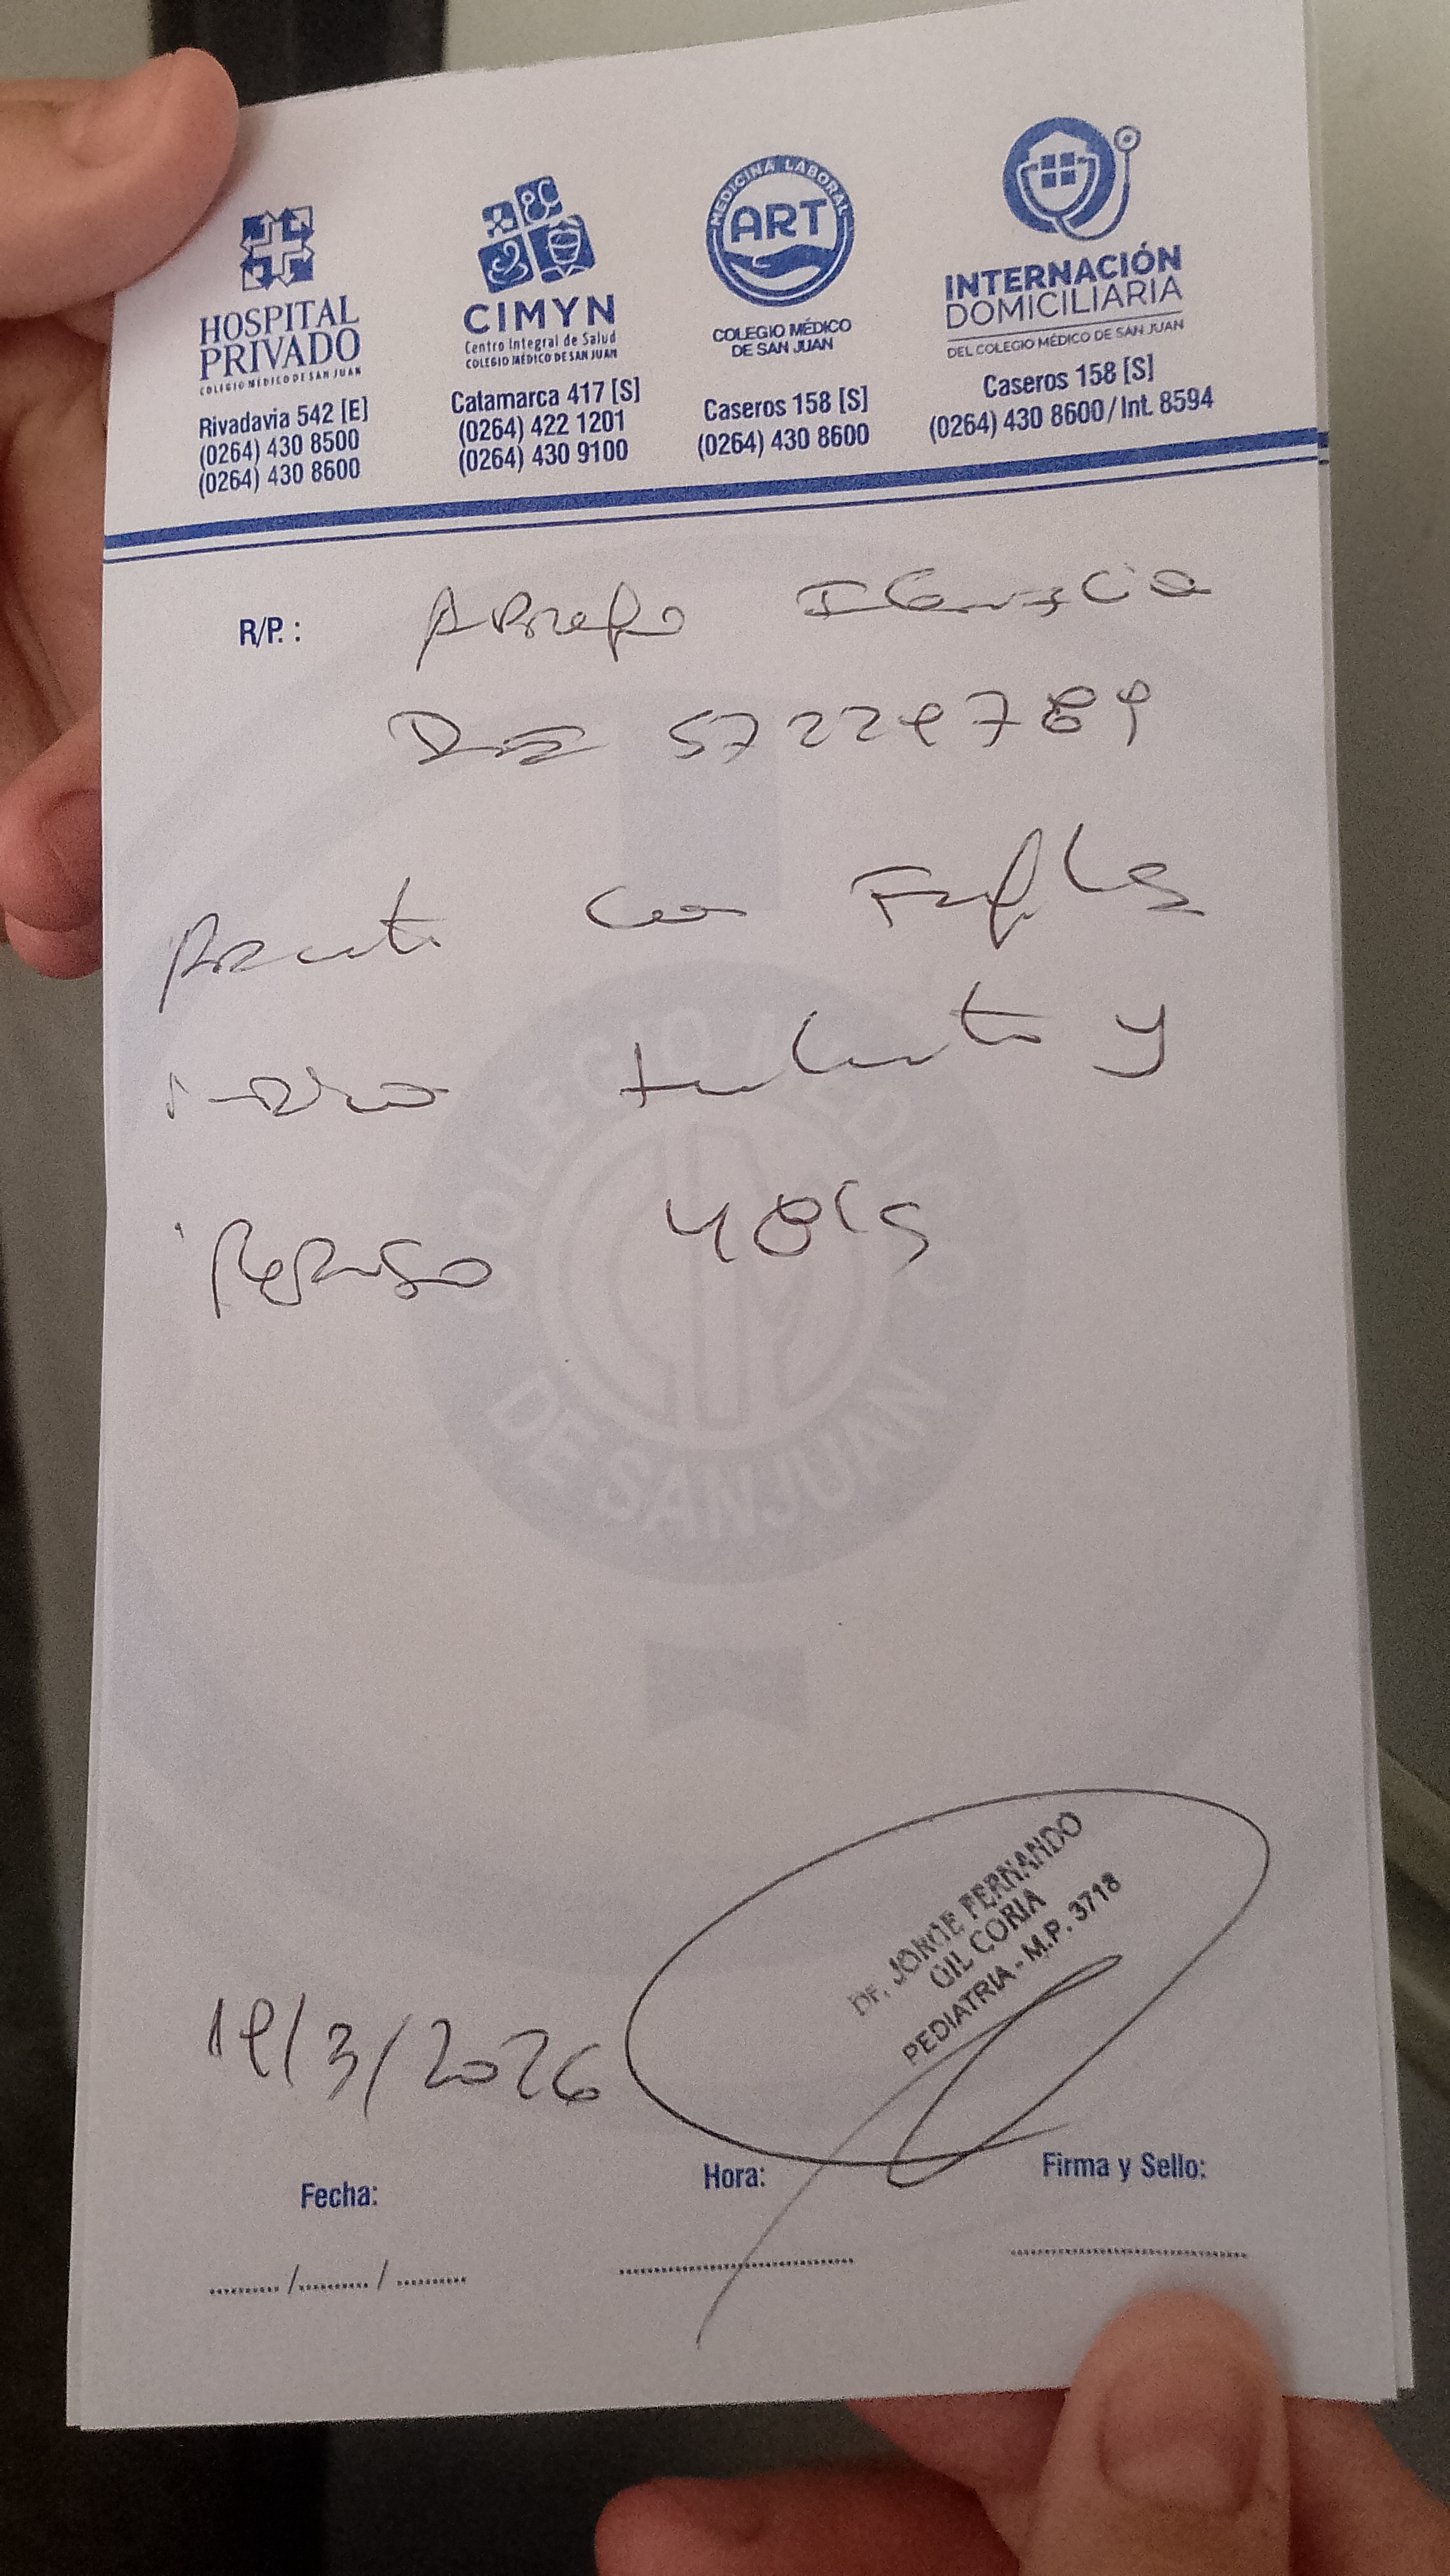 HOSPITAL
PRIVADO
COLEGIO MÉDICO DE SAN JUAN
Rivadavia 542 [E]
(0264) 430 8500
(0264) 430 8600
CIMYN
Centro Integral de Salud
COLEGIO MÉDICO DE SAN JUAN
Catamarca 417 [S]
(0264) 422 1201
(0264) 430 9100
MEDICINA LABORAL
ART
COLEGIO MÉDICO
DE SAN JUAN
Caseros 158 [S]
(0264) 430 8600
INTERNACIÓN
DOMICILIARIA
DEL COLEGIO MÉDICO DE SAN JUAN
Caseros 158 [S]
(0264) 430 8600 / Int. 8594
R/P.:
57229789
con
y
Reposo 48
COLEGIO MÉDICO
DE SAN JUAN
Dr. JORGE FERNANDO
GIL CORIA
PEDIATRIA - M.P. 3718
19/3/2026
Fecha:
Hora:
Firma y Sello: